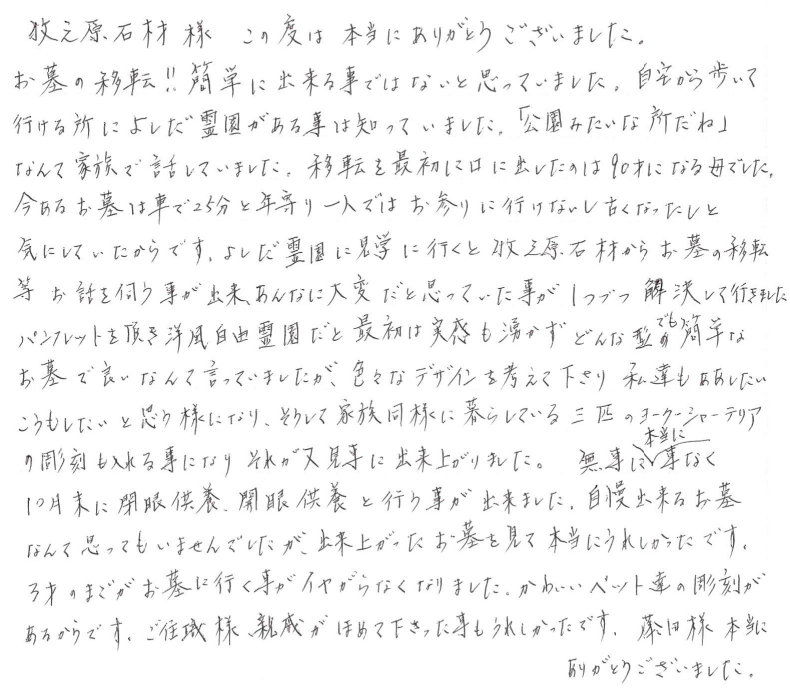 牧之原石材様 この度は本当にありがとうございました。
お墓の移転!!簡単に出来る事ではないと思っていました。自宅から歩いて
行ける所によしだ霊園がある事は知っていました。「公園みたいな所だね」
なんて家族で話していました。移転を最初に口に出したのは90才になる母でした。
今あるお墓は車で25分と年寄り一人ではお参りに行けないし古くなったしと
気にしていたからです。よしだ霊園に見学に行くと牧之原石材からお墓の移転
等お話を伺う事が出来、あんなに大変だと思っていた事が1つづつ解決して行きました
パンフレットを頂き洋風自由霊園だと最初は実感も湧かずどんな型でもの簡単な
お墓で良いなんて言っていましたが、色々なデザインを考えて下さり私達もああしたい
こうもしたいと思う様になり、そうして家族同様に暮らしている三匹のヨークーシャーテリア
の彫刻も入れる事になりそれが又見事に出来上がりました。 無事に本当に事なく
10月末に閉眼供養、開眼供養と行う事が出来ました。自慢出来るお墓
なんて思ってもいませんでしたが、出来上がったお墓を見て本当にうれしかったです。
3才のまごがお墓に行く事がイヤがらなくなりました。かわいいペット達の彫刻が
あるからです。ご住職様、親戚がほめて下さった事もうれしかったです。藤田様本当に
ありがとうございました。